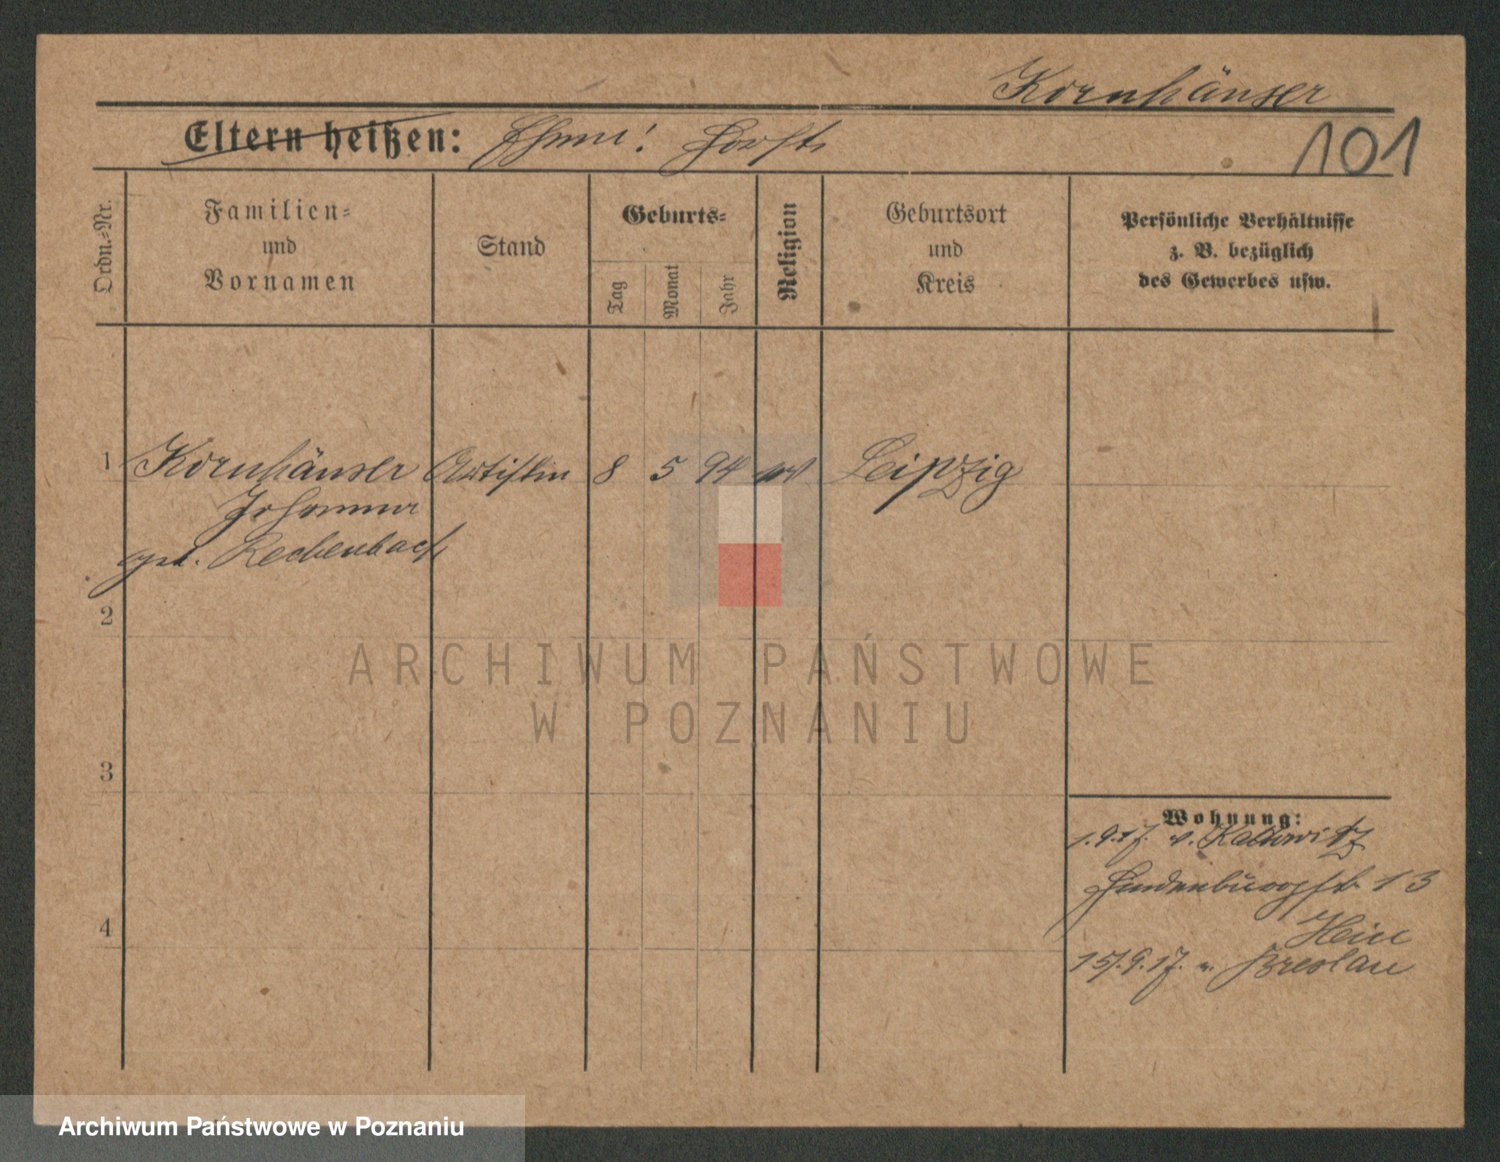 Kornhäuser
Eltern heißen: Ehem: Horst
101
Ordn.-Nr.
Familien-
und
Vornamen
Stand
Geburts-
Tag
Monat
Jahr
Religion
Geburtsort
und
Kreis
Persönliche Verhältnisse
z. B. bezüglich
des Gewerbes usw.
1 Kornhäuser Artistin 8 5 94 Leipzig
Johanna
geb. Rechenbach
2
3
4
Wohnung:
1.9.17. v. Kattowitz
Hindenburgstr 13
15.9.17. n. Breslau
ARCHIWUM PAŃSTWOWE
W POZNANIU
Archiwum Państwowe w Poznaniu